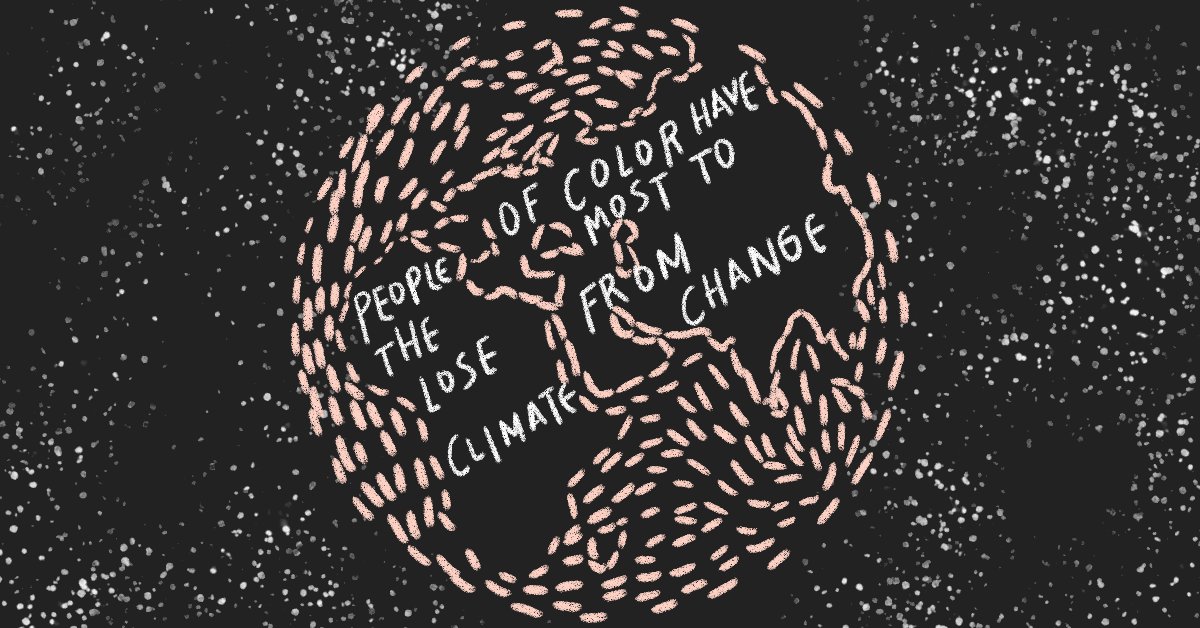 PEOPLE OF COLOR HAVE
THE MOST TO
LOSE FROM
CLIMATE CHANGE